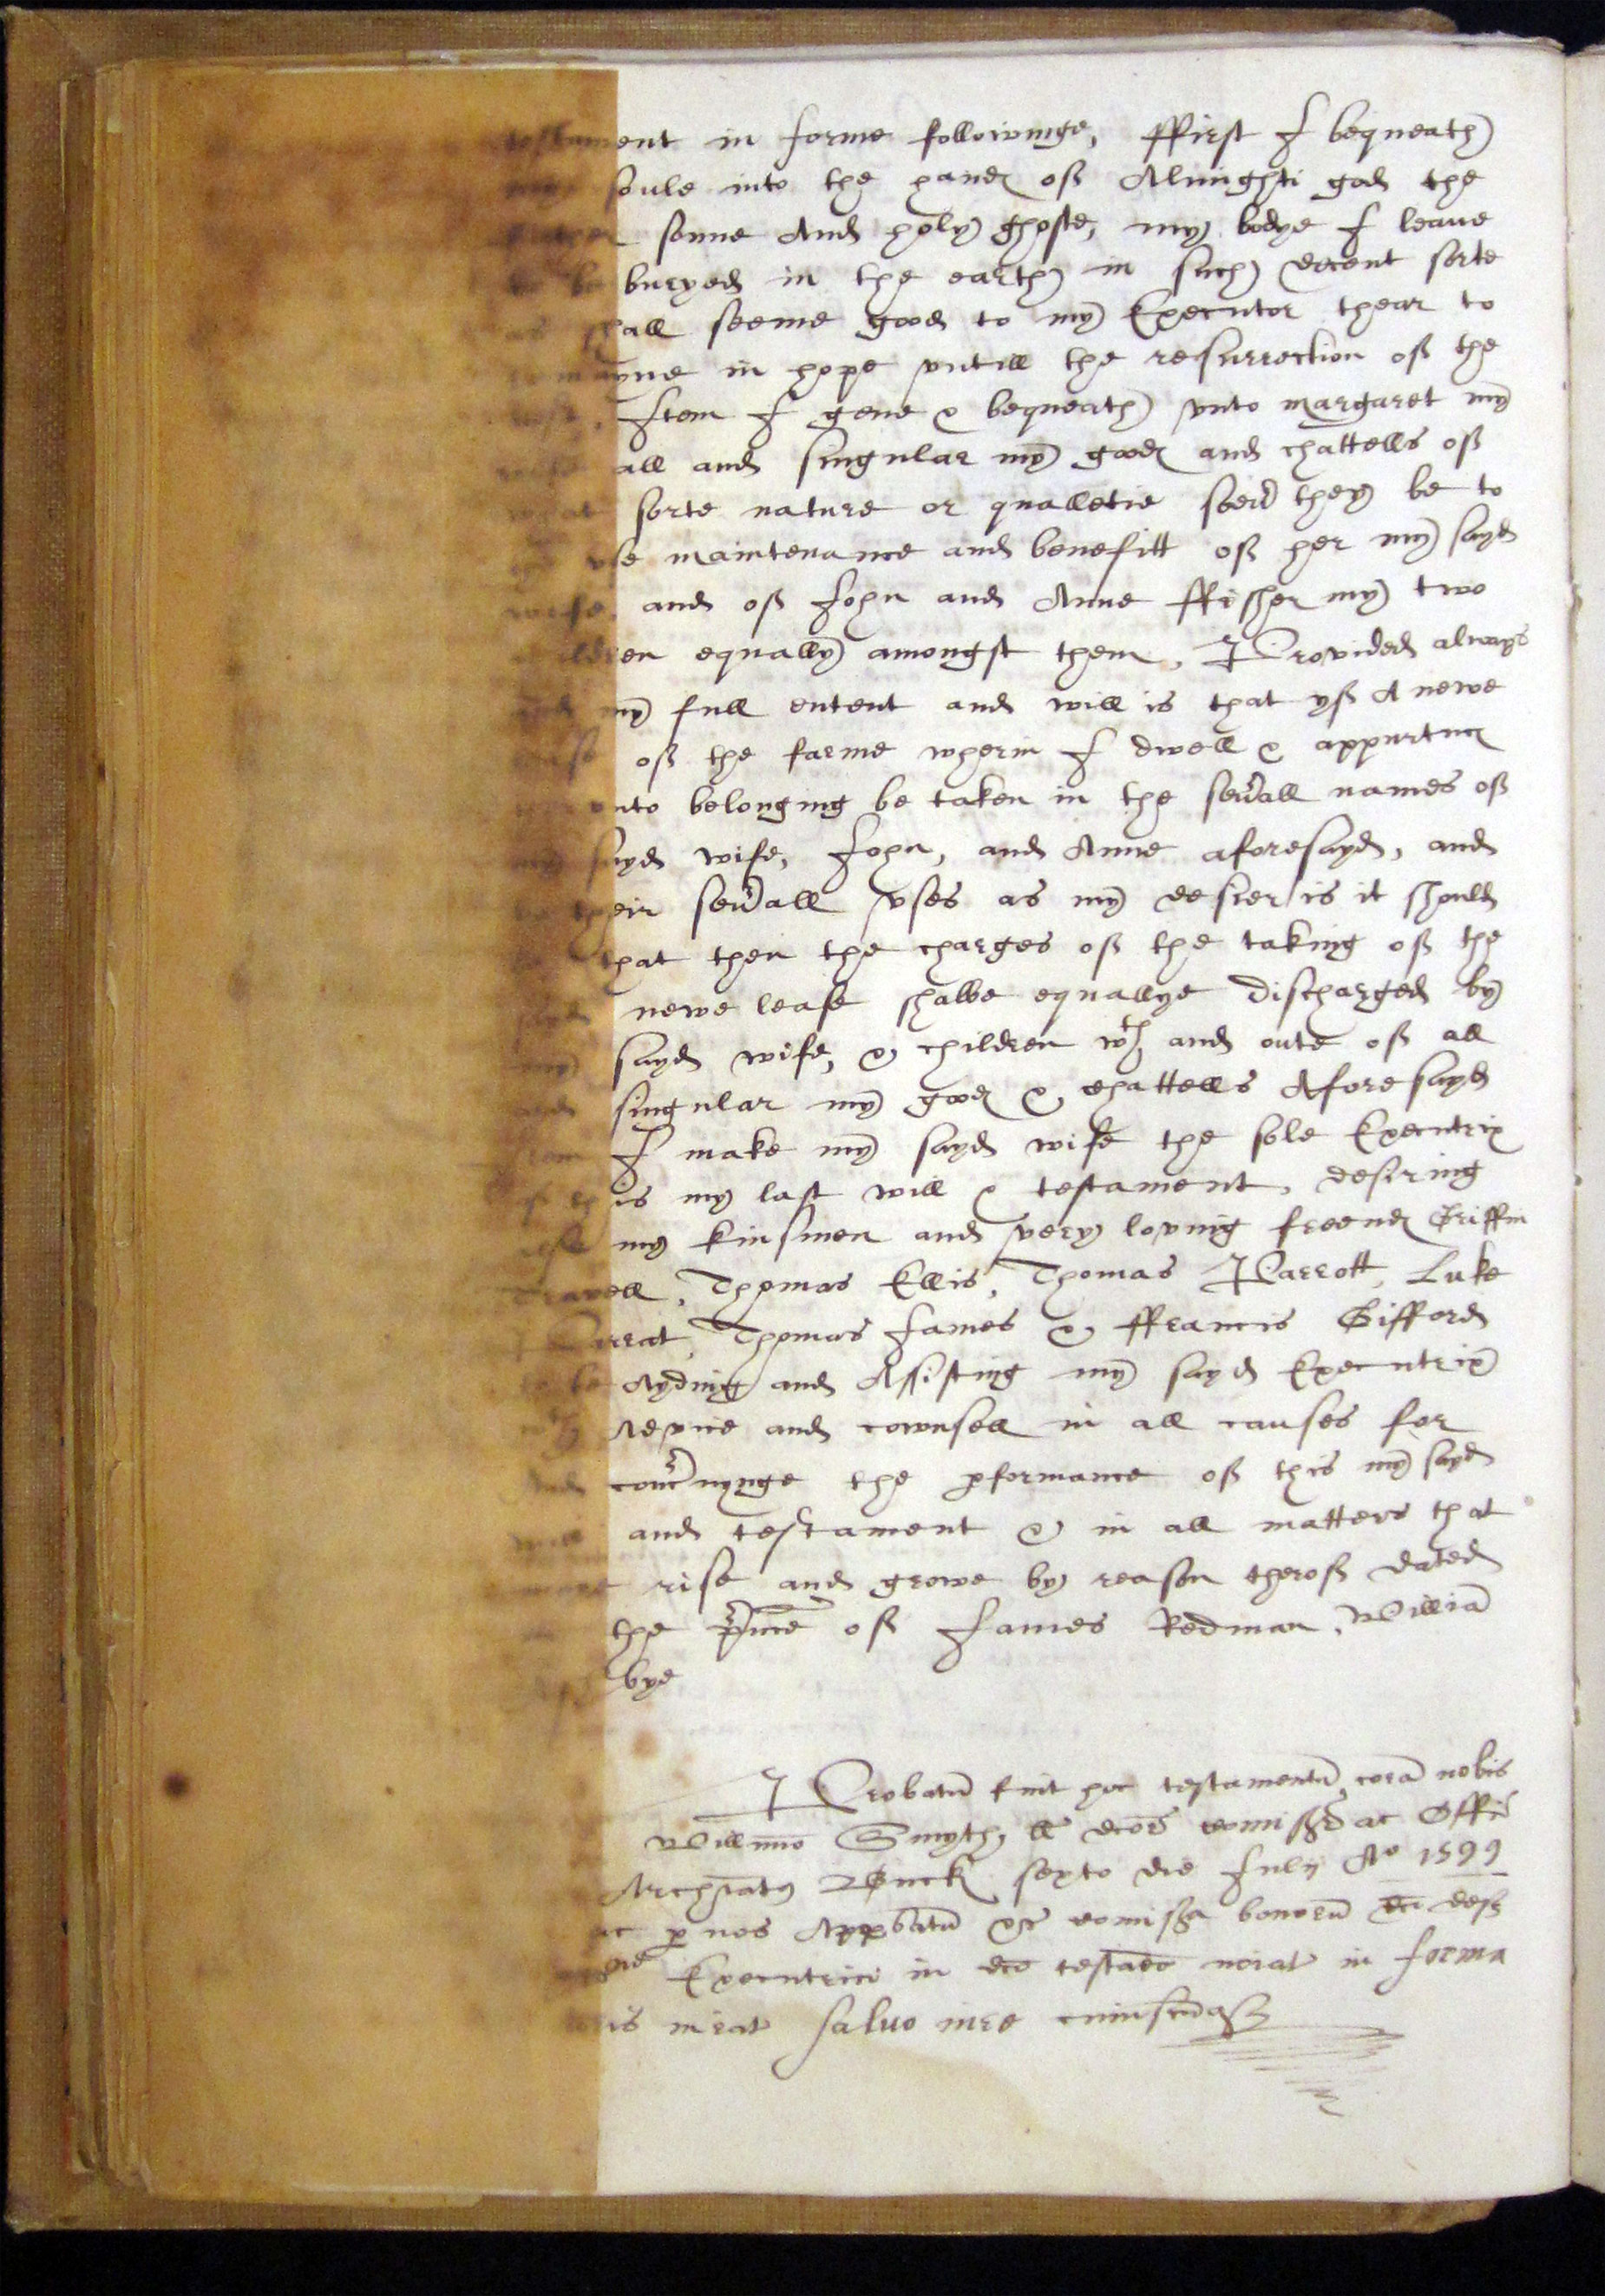 testament in forme followinge, ffirst I bequeath
my soule into the hands off Almighti god the
father sonne And holy ghoste, my bodye I leaue
to be buryed in the earth in such decent sorte
as shall seeme good to my Executor thear to
remayne in hope vntill the resurrection off the
Item I geue & bequeath vnto margaret my
wife all and singular my goods and chattells off
what sorte nature or qualletie soeu they be to
the vse maintenance and benefitt off her my sayd
wife, and off John and Anne ffissher my two
children equally amongst them, Provided always
and my full entent and will is that yff A newe
lease off the farme wherin I dwell & appurtncs
vnto belonging be taken in the seuall names off
my sayd wife, John, and Anne aforesayd, and
to their seuall vses as my desier is it should
be that then the charges off the taking off the
sayd newe lease shalbe equallye discharged by
my sayd wife, & children wth and oute off all
and singular my goods & chattells Aforesayd
Item I make my sayd wife the sole Executrix
of this my last will & testament, desiring
also my kinsmen and very loving freends Griffin
Travell, Thomas Ellis, Thomas Parrott, Luke
Parrat, Thomas James & ffrancis Gifford
to be Ayding and Assisting my sayd Executrix
wth Advice and cownsell in all causes for
And concnynge the pformance off this my sayd
will and testament & in all matters that
rise and growe by reason theroff dated
the pnce off James Redman, Willia
bye
Probatu fuit hoc testamentu cora nobis
Willmo Smyth, ll dcore comissr ac Offi
Archiatus Buck sexto die July Ao 1599
ac p nos Approbatu &c comissa bonoru dci def
Executrici in dco testamto noiat in forma
iuris iurat saluo iure cuiuscunq